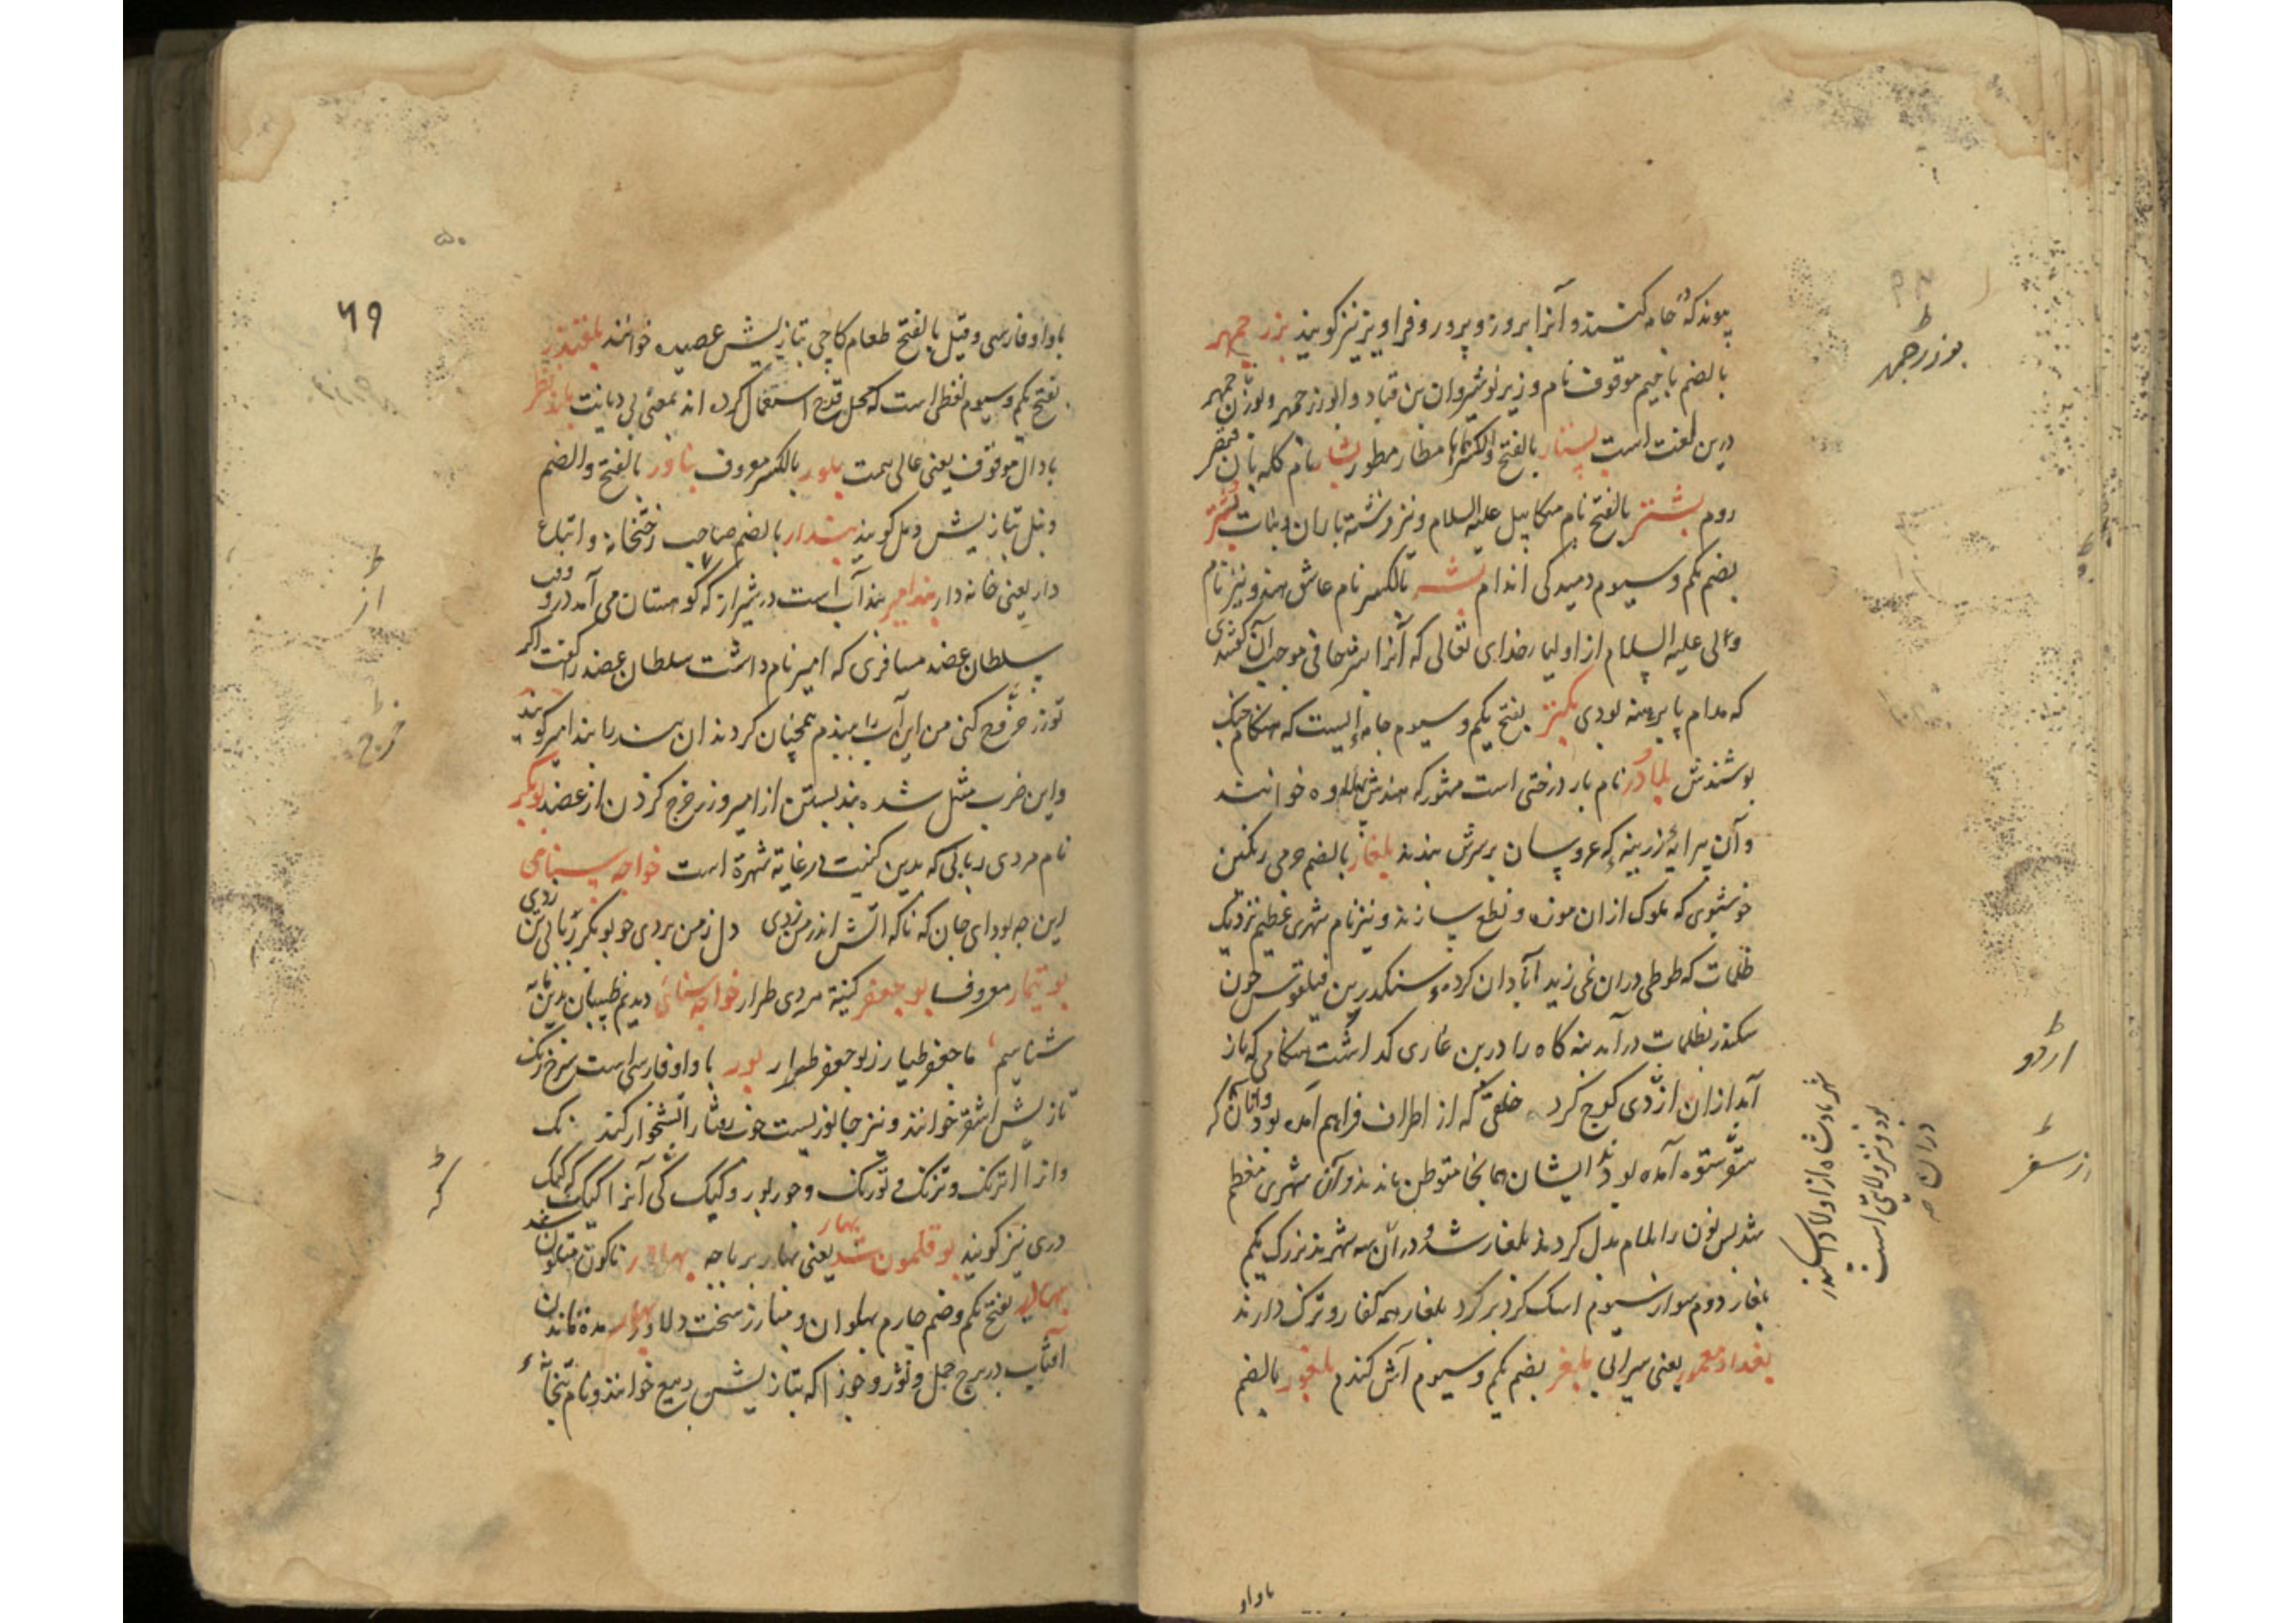 پیوند که جامه کنند و آنرا بروز و پرور و فراویز نیز کویند بزرجمهر
بالضم با جیم موقوف نام وزیر نوشیروان بن قباد و ابوزرجمهر و بوزرجمهر
درین لغت است بالفتح والکسر مطار مطور بشار نام کله بان قیصر
روم بشتر بالفتح نام میکاییل علیه السلام و نیز فرشته باران و نبات
بضم یکم و سیوم دمیدکی اندام بشر بالکسر نام عاشق هند و نیز نام
ولی علیه السلام از اولیاء خدای تعالی که آنرا بشر حافی موجب آن کفتندی
که مدام پا برهنه بودی بکتر بفتح یکم و سیوم جامه ایست که هنکام جنک
پوشندش بلادر نام بار درختی است مشهور که هندش بهلاوه خوانند
و آن پیرایه زرینه که عروسان بر سرش بندند بلغار بالضم چرمی رنکین
خوشبوی که ملوک از ان موزه و نطع سازند و نیز نام شهری عظیم نزدیک
ظلمات که طوطی دران نمی زید آبادان کرده سکندر بن فیلقوس چون
سکندر بظلمات در آمد بنه کاه را در بن غاری کذاشت هنکامی که باز
آمد ازان از دی کوچ کرد خلقی که از اطراف فراهم آمده بود و آنان که
ستوه آمده بودند ایشان همانجا متوطن ماندند و آن شهری معظم
شد پس نون را بلام بدل کردند بلغار شد و دران سه شهرند بزرک یکم
بلغار دوم سوار سیوم اسک کرد بر کرد بلغار همه کفار و ترک دارند
بغداد معمور یعنی سیرابی بلغر بضم یکم و سیوم آش کندم بلغور بالضم
باواو
بوزرجمهر
اردو
شهر پادشاه از اولاد اسکندر
بود و نیز ولایتی است
۶۹
۵۰
باواو فارسی و قیل بالفتح طعام کاچی بتازیش عصیده خوانند
بفتح یکم و سیوم لفظی است که بمحل قدح استعمال کرده اند بمعنی بی دیانت
با دال موقوف یعنی عالی همت بلور بالکسر معروف بناور بالفتح والضم
دنبل بتازیش دمل کویند بندار بالضم صاحب رختخانه و اتباع
دار یعنی خانه دار بندامیر بند آب است در شیراز که کوهستان می آمد در وقت
سلطان عضد مسافری که امیر نام داشت سلطان عضد را کفت اکر
تو زر خرج کنی من این آب را ببندم همچنان کردند ان بند را بند امیر کویند
و این ضرب مثل شده بند بستن از امیر و زر خرج کردن از عضد بوبکر
نام مردی ربابی که بدین کنیت در غایة شهرة است خواجه سنامی
این چه بود ای جان که ناکه اتش اندر من زدی دل ز من بردی چو بوبکر ربابی تن زدی
بوتیمار معروف بوجعفر کنیة مردی طرار خواجه سنائی دیدیم طبیبان بدین مایه
شناسیم ما جعفر طیار ز بوجعفر طرار بور باواو فارسی است سرخ رنک
تازیش اشقر خوانند و نیز جانوریست
وانرا ترنک و تورنک و خور بور و کبک
دری نیز کویند بوقلمون شد یعنی بهار
بهادر بفتح یکم و ضم چارم پهلوان و مبارز سخت دلاور بهار مدة ماندن
آفتاب در برج حمل و ثور و جوزا که بتازیش ربیع خوانند و نام بتخانه
از
خرج
که